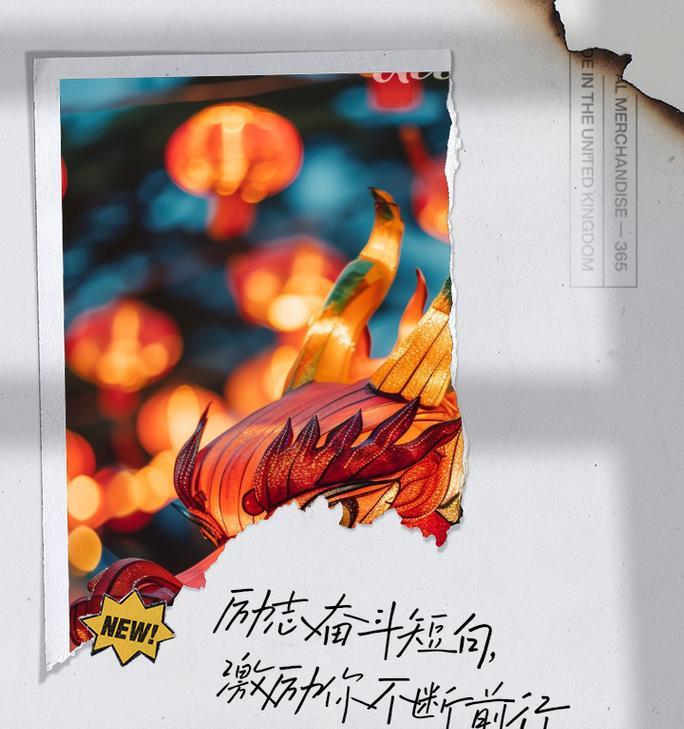 AL MERCHANDISE — 365
DE IN THE UNITED KINGDOM
NEW!
励志奋斗短句,
激励你不断前行